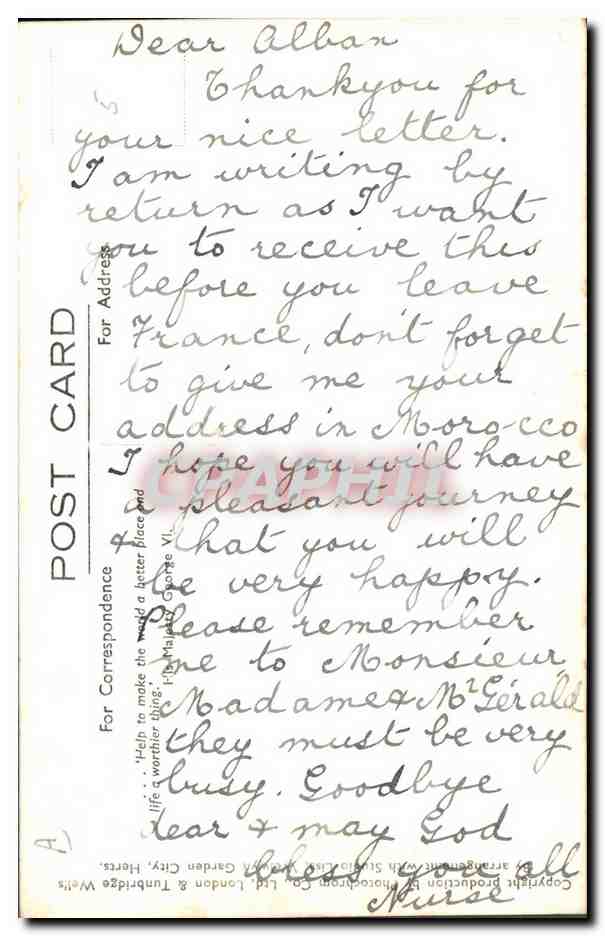 Dear Alban
Thankyou for
your nice letter.
I am writing by
return as I want
you to receive this
before you leave
France, don't forget
to give me your
address in Morocco
I hope you will have
a pleasant journey
& that you will
be very happy.
Please remember
me to Monsieur
Madame & Mr Gérald
they must be very
busy. Goodbye
dear & may God
bless you all
Nurse
POST CARD
For Correspondence
For Address
... 'Help to make the world a better place and
life a worthier thing.'
His Majesty George VI.
Copyright production by Photochrom Co., Ltd., London & Tunbridge Wells
By arrangement with Studio Lisa, Welwyn Garden City, Herts.
CPAPHIL
A
5